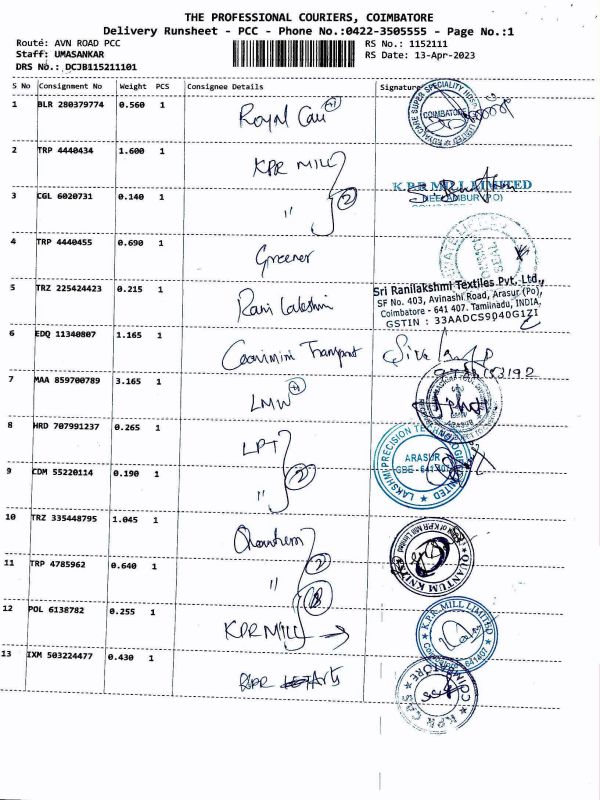 THE PROFESSIONAL COURIERS, COIMBATORE
Delivery Runsheet - PCC - Phone No.:0422-3505555 - Page No.:1
Route: AVN ROAD PCC
RS No.: 1152111
Staff: UMASANKAR
RS Date: 13-Apr-2023
DRS No.: DCJB115211101
S No Consignment No Weight PCS Consignee Details Signature
1 BLR 280379774 0.560 1 Royal Care
COIMBATORE
2 TRP 4440434 1.600 1 KPR MILL
K.P.R MILL LIMITED
NEELAMBUR (PO)
3 CGL 6020731 0.140 1 " 2
4 TRP 4440455 0.690 1 Greener
5 TRZ 225424423 0.215 1 Rani Lakshmi
Sri Ranilakshmi Textiles Pvt. Ltd.,
SF No. 403, Avinashi Road, Arasur (Po),
Coimbatore - 641 407. Tamilnadu, INDIA.
GSTIN : 33AADCS9040G1ZI
6 EDQ 11340807 1.165 1 Transport
7 MAA 859700789 3.165 1 LMW
8 HRD 707991237 0.265 1 LPT
LAKSHMI PRECISION TECHNOLOGIES LIMITED
ARASUR
CBE - 641 407
9 CDM 55220114 0.190 1 " 2
10 TRZ 335448795 1.045 1 Quantum
QUANTUM KNITS
11 TRP 4785962 0.640 1 " 2
12 POL 6138782 0.255 1 KPR MILL
K.P.R. MILL LIMITED
641407
13 IXM 503224477 0.430 1 KPR Arts